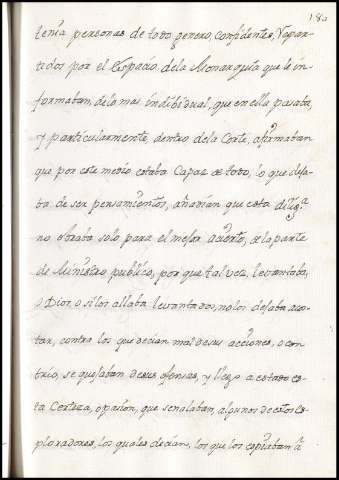 180
tenia personas de todo genero, confidentes, Repar-
tidos por el Espacio dela Monarquia que le in-
formaban, delo mas indibidual, que en ella pasaba,
y particularmente, dentro dela Corte, afirmaban
que por este medio estaba Capaz de todo, lo que dista-
ba de ser pensamientos, añadian que esta dilig.ª
no obraba solo para el mejor acierto, de la parte
de Ministro publico, por que tal vez, levantaba,
o Dios, o si los allaba levantados, no los dejaba
tar, contra los que decian mal de sus acciones, o con
se quejaban de sus ofensas, y llego a estado es-
ta Certeza, o pasion, que señalaban, algunos de estos Es-
ploradores, los quales decian, los que los espiaban a